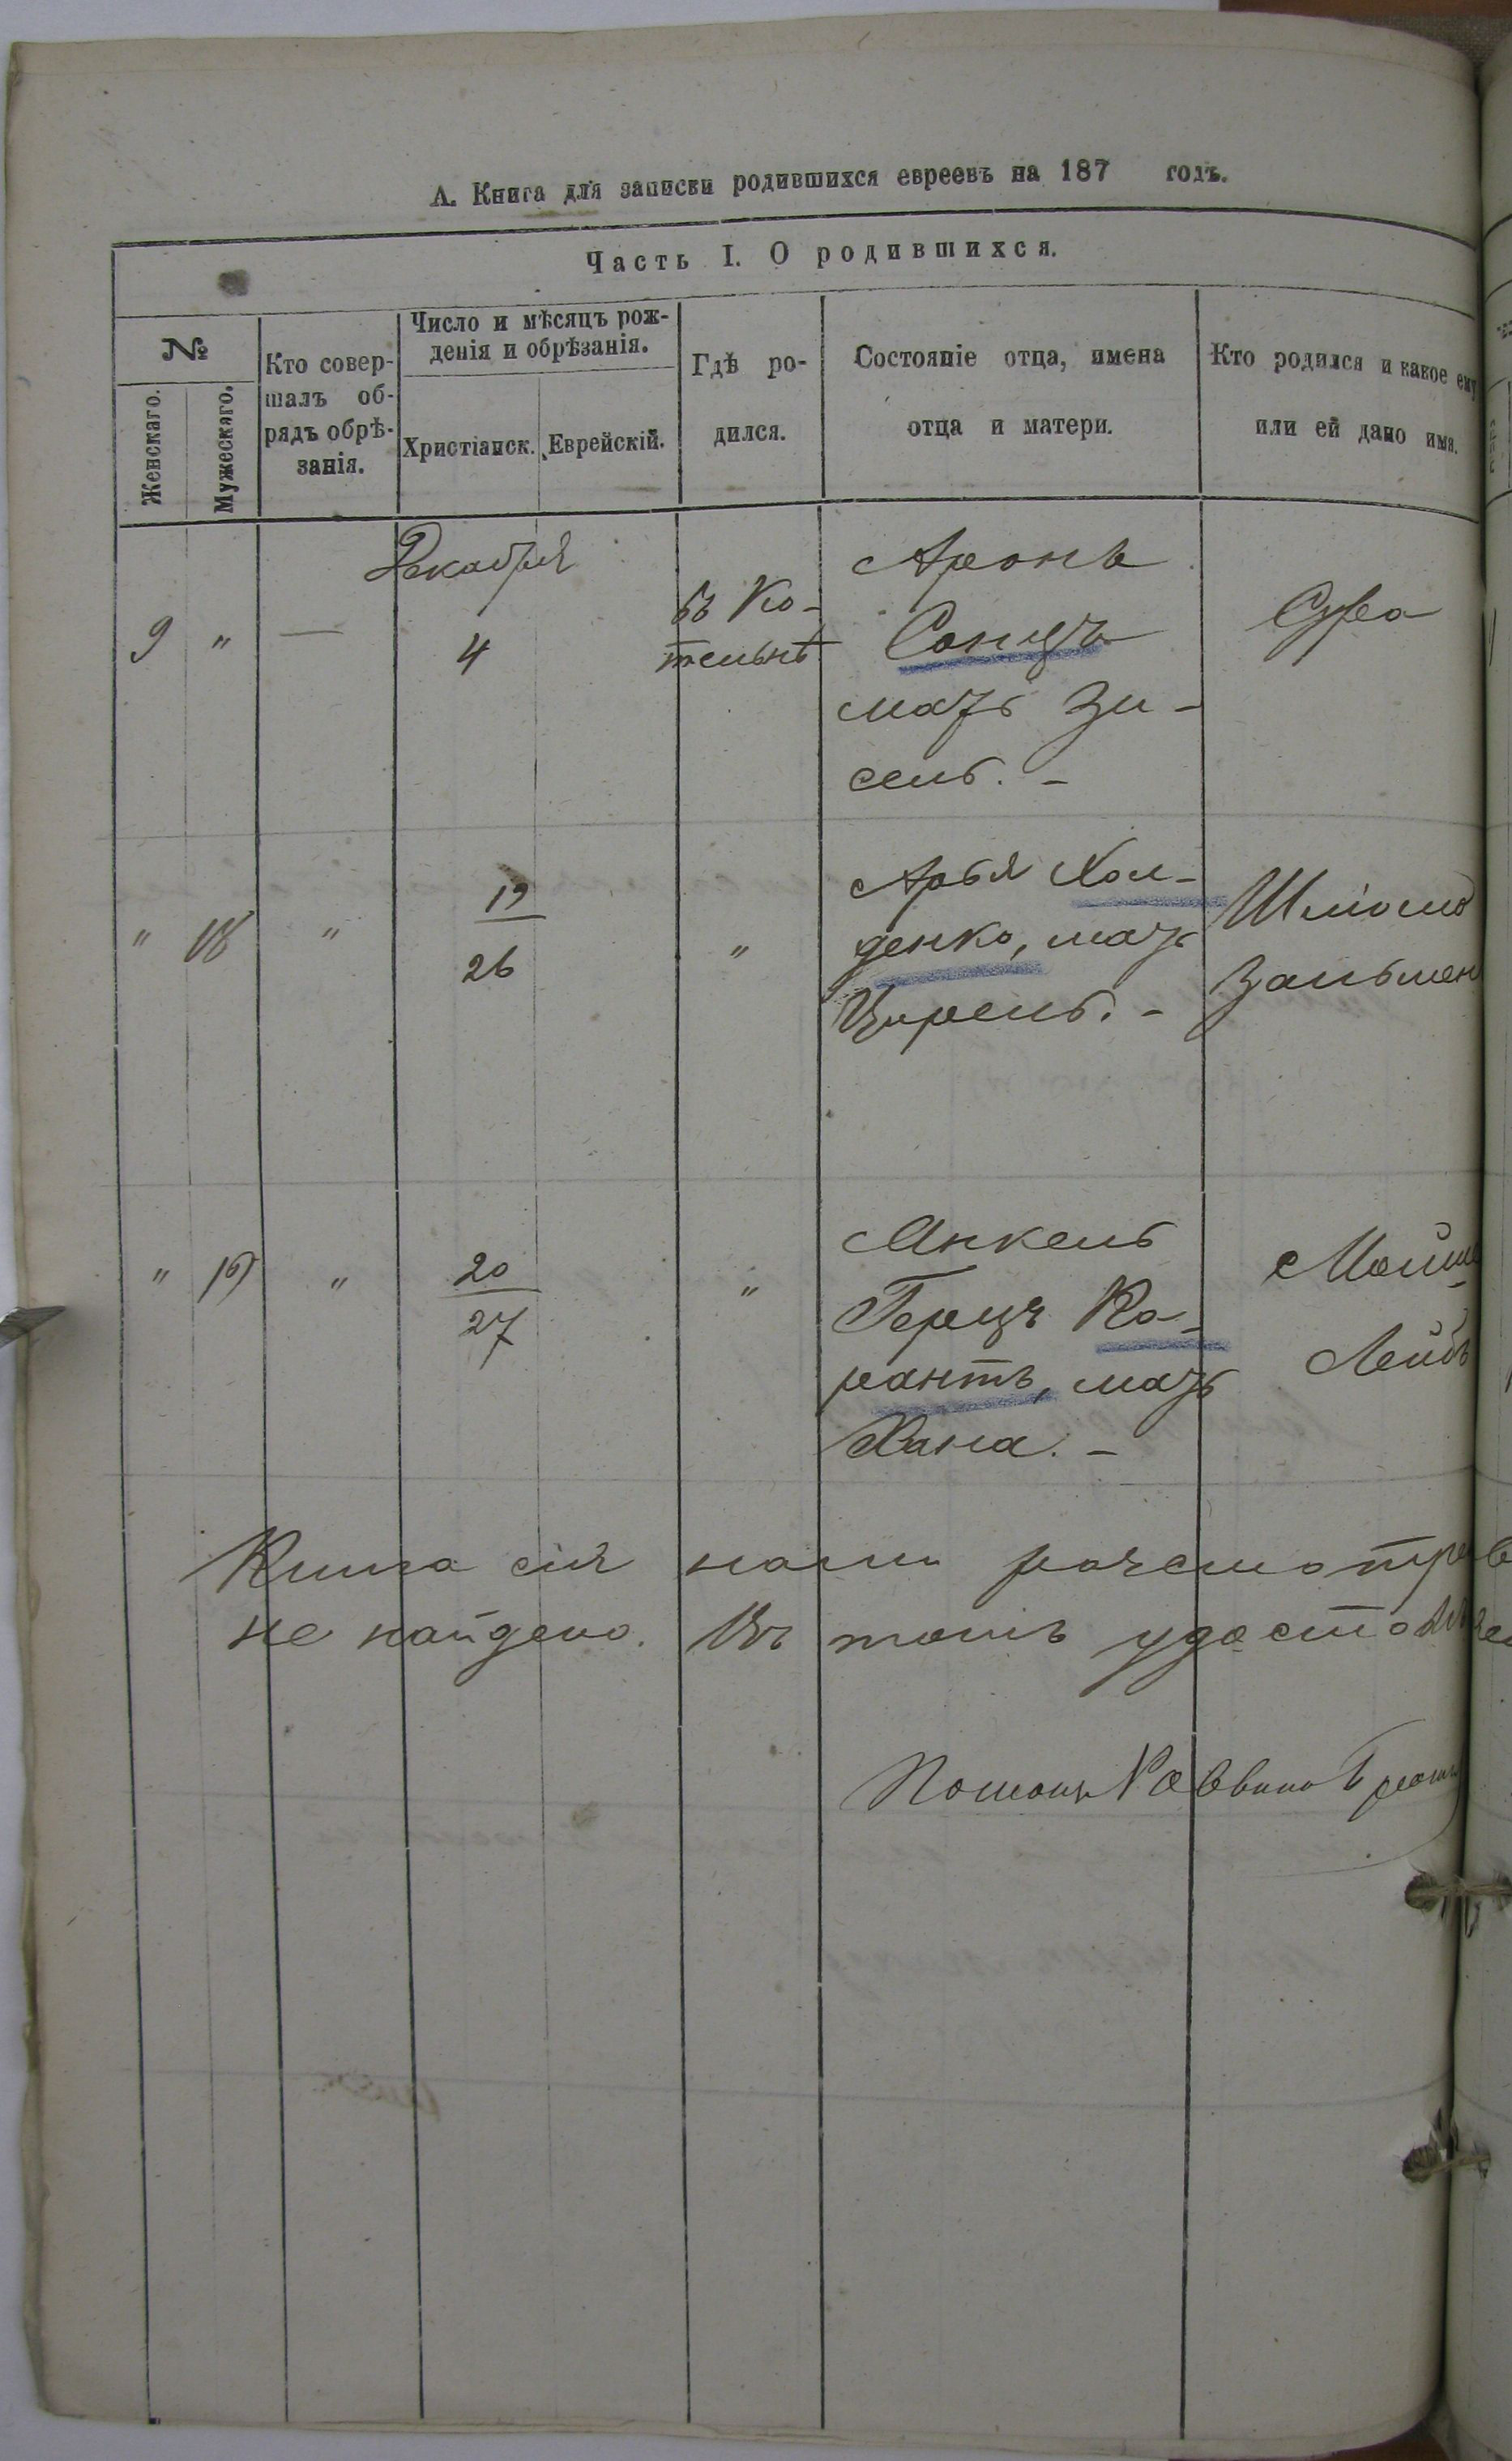 А. Книга для записки родившихся евреевъ на 187 годъ.
Часть I. О родившихся.
№
Женскаго.
Мужескаго.
Кто совер-
шалъ об-
рядъ обрѣ-
занія.
Число и мѣсяцъ рож-
денія и обрѣзанія.
Христіанск.
Еврейскій.
Гдѣ ро-
дился.
Состояніе отца, имена
отца и матери.
Кто родился и какое ему
или ей дано имя.
Декабря
9 " — 4
въ Ко-
тельнѣ
Аронъ
Сонцъ
мать Зи-
сель. -
Сура
" 18 " 19
26
"
Арья Хол-
денко, мать
Цирель. -
Шліома
Зальмен
" 19 " 20
27
"
Янкель
Герцъ Ко-
рантъ, мать
Хана. -
Мойше
Лейбъ
Книга сія нами разсмотре
не найдено. Въ томъ удостовѣ
Помощн Раввина